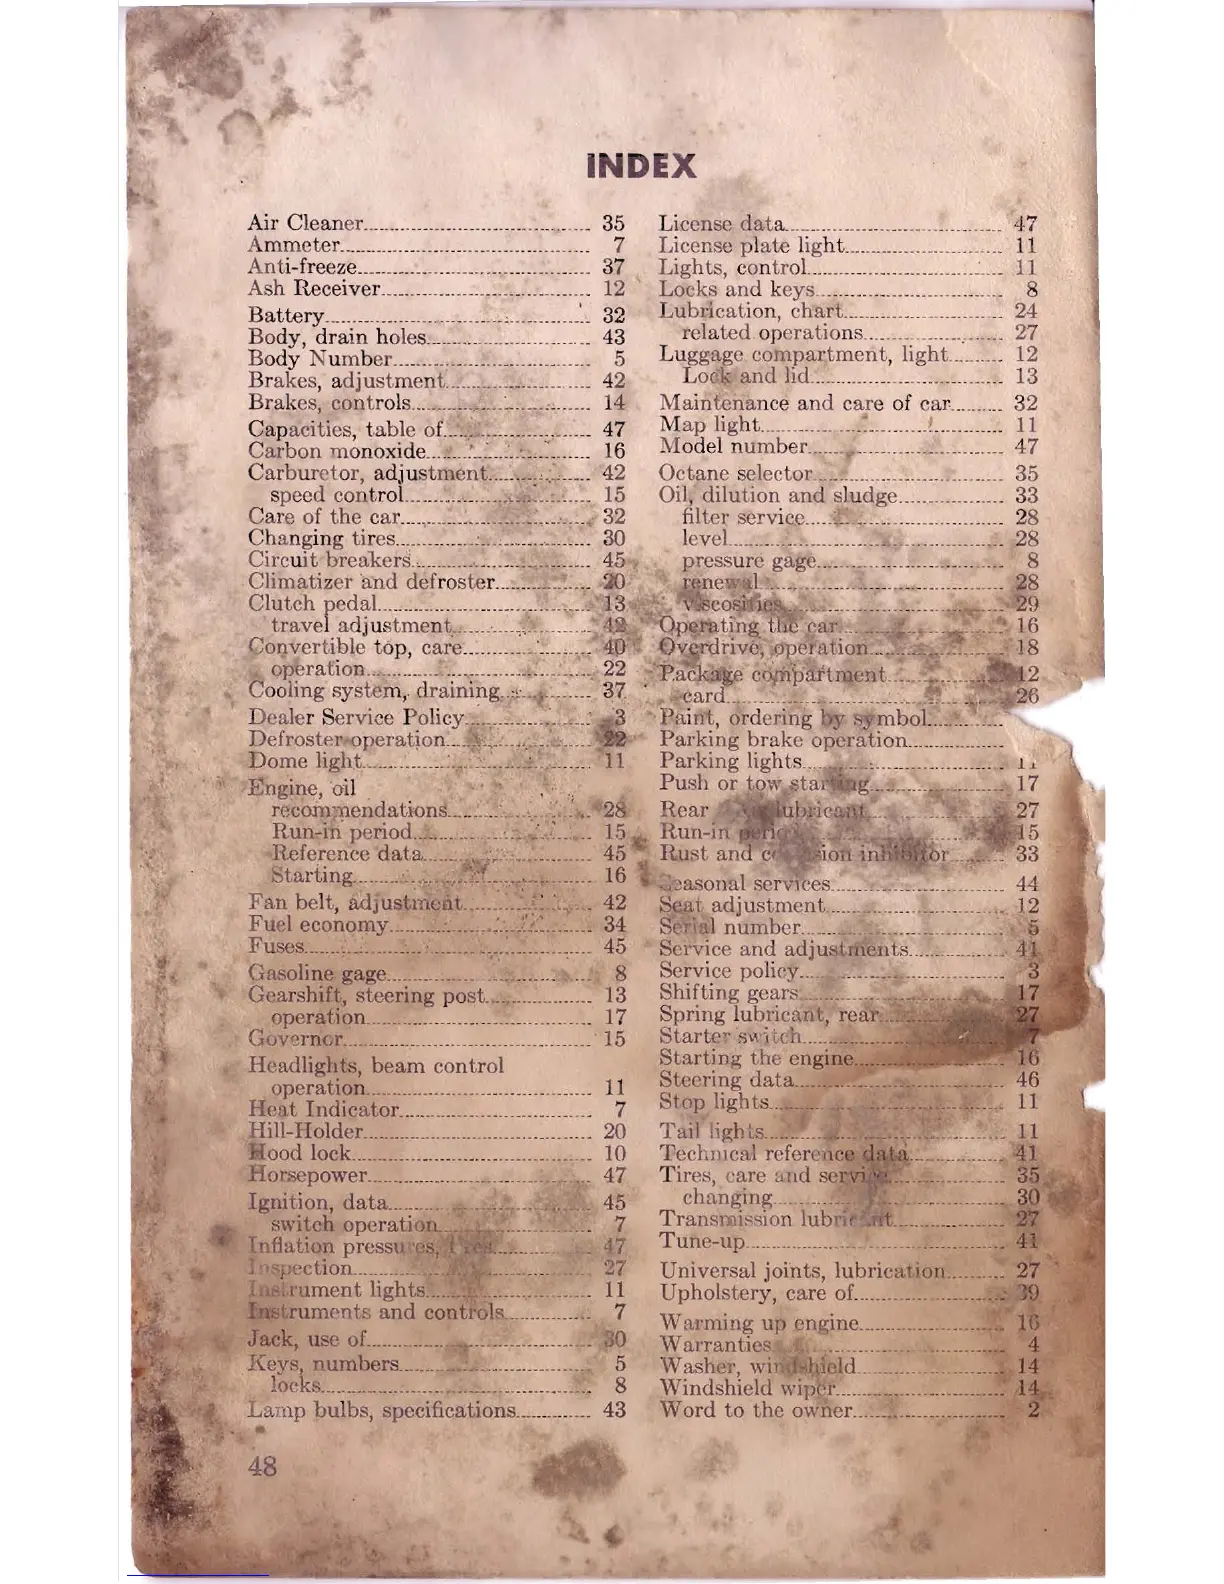 INDEX
Air Cleaner 35
Ammeter 7
Anti-freeze 37
Ash Receiver 12
Battery 32
Body, drain holes 43
Body Number 5
Brakes, adjustment 42
Brakes, controls 14
Capacities, table of 47
Carbon monoxide 16
Carburetor, adjustment 42
speed control 15
Care of the car 32
Changing tires 30
Circuit breakers 45
Climatizer and defroster 20
Clutch pedal 13
travel adjustment 42
Convertible top, care 40
operation 22
Cooling system, draining 37
Dealer Service Policy 3
Defroster operation 22
Dome light 11
Engine, oil
recommendations 28
Run-in period 15
Reference data 45
Starting 16
Fan belt, adjustment 42
Fuel economy 34
Fuses 45
Gasoline gage 8
Gearshift, steering post 13
operation 17
Governor 15
Headlights, beam control
operation 11
Heat Indicator 7
Hill-Holder 20
Hood lock 10
Horsepower 47
Ignition, data 45
switch operation 7
Inflation pressures, tires 47
Inspection 27
Instrument lights 11
Instruments and controls 7
Jack, use of 30
Keys, numbers 5
locks 8
Lamp bulbs, specifications 43
48
License data 47
License plate light 11
Lights, control 11
Locks and keys 8
Lubrication, chart 24
related operations 27
Luggage compartment, light 12
Lock and lid 13
Maintenance and care of car 32
Map light 11
Model number 47
Octane selector 35
Oil, dilution and sludge 33
filter service 28
level 28
pressure gage 8
renewal 28
viscosities 29
Operating the car 16
Overdrive, operation 18
Package compartment 12
card 26
Paint, ordering by symbol
Parking brake operation
Parking lights 11
Push or tow starting 17
Rear lubricant 27
Run-in period 15
Rust and corrosion inhibitor 33
Seasonal services 44
Seat adjustment 12
Serial number 5
Service and adjustments 41
Service policy 3
Shifting gears 17
Spring lubricant, rear 27
Starter switch 7
Starting the engine 16
Steering data 46
Stop lights 11
Tail lights 11
Technical reference data 41
Tires, care and service 35
changing 30
Transmission lubricant 27
Tune-up 41
Universal joints, lubrication 27
Upholstery, care of 39
Warming up engine 16
Warranties 4
Washer, windshield 14
Windshield wiper 14
Word to the owner 2